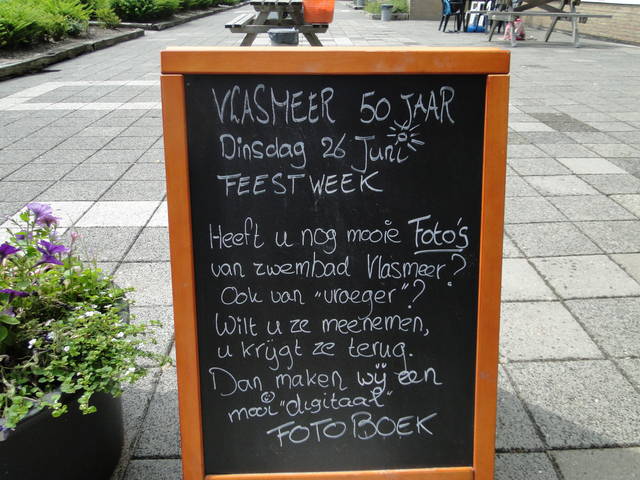 VLASMEER 50 JAAR
Dinsdag 26 Juni
FEESTWEEK
Heeft u nog mooie Foto's
van zwembad Vlasmeer?
Ook van "vroeger"?
Wilt u ze meenemen,
u krijgt ze terug.
Dan maken wij een
mooi "digitaal"
FOTOBOEK